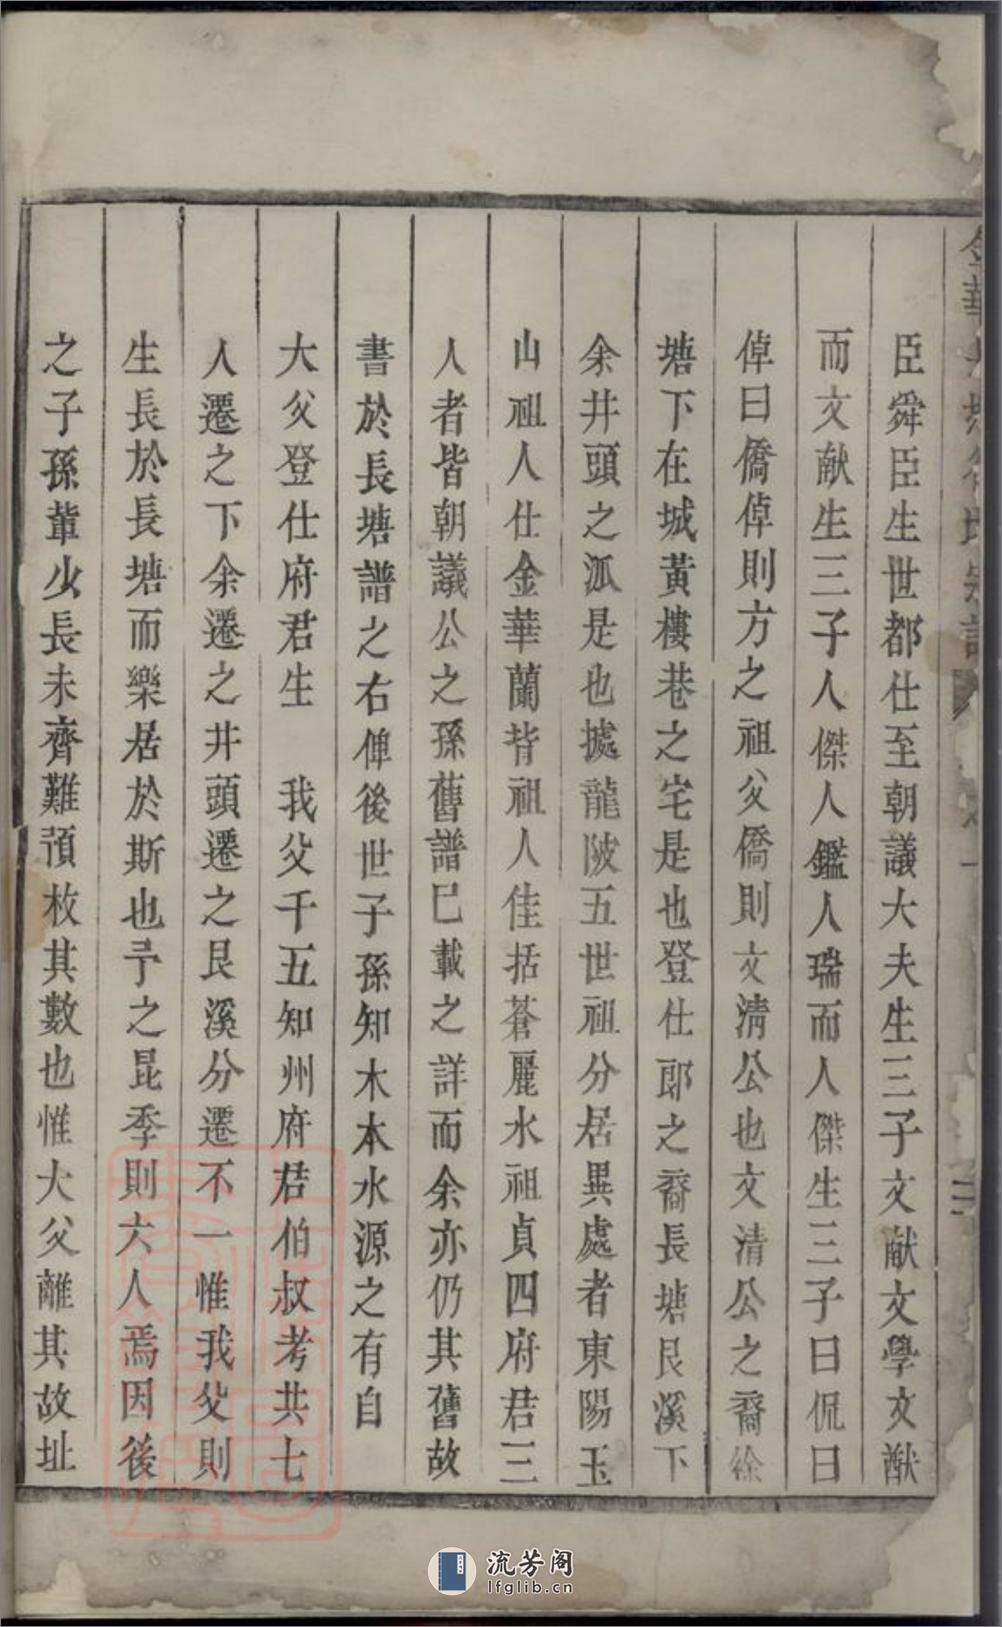 臣舜臣生世都仕至朝議大夫生三子文献文學文猷
而文献生三子人傑人鑑人瑞而人傑生三子曰侃曰
倬曰僑倬則方之祖父僑則文清公也文清公之裔徐
塘下在城黃樓巷之宅是也登仕郎之裔長塘艮溪下
余井頭之派是也㨿龍陂五世祖分居異處者東陽玉
山祖人仕金華蘭背祖人佳括蒼麗水祖貞四府君三
人者皆朝議公之孫舊譜巳載之詳而余亦仍其舊故
書於長塘譜之右俾後世子孫知木本水源之有自
大父登仕府君生　我父千五知州府君伯叔考共七
人遷之下余遷之井頭遷之艮溪分遷不一惟我父則
生長於長塘而樂居於斯也予之昆季則六人焉因後
之子孫輩少長未齊難預枚其數也惟大父離其故址
流芳阁
lfglib.cn